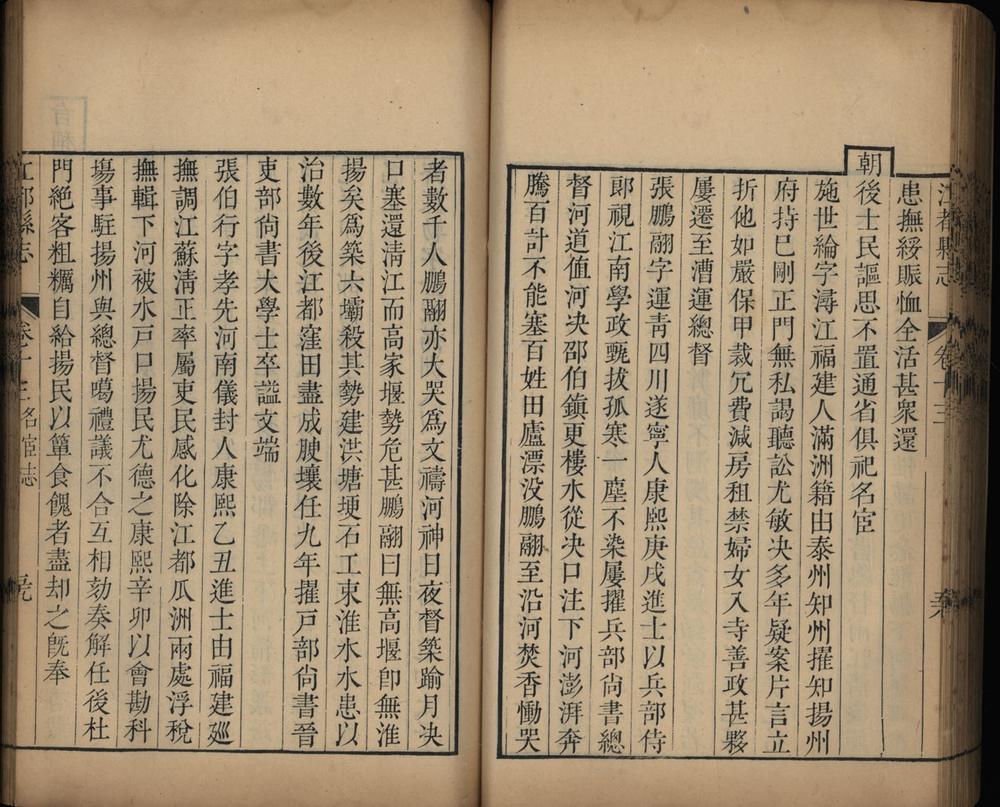 江都縣志
卷十三
患撫綏賑恤全活甚衆還
朝後士民謳思不置通省俱祀名宦
施世綸字潯江福建人滿洲籍由泰州知州擢知揚州
府持已剛正門無私謁聽訟尤敏决多年疑案片言立
折他如嚴保甲裁冗費減房租禁婦女入寺善政甚夥
屢遷至漕運總督
張鵬翮字運青四川遂寧人康熙庚戌進士以兵部侍
郞視江南學政甄拔孤寒一塵不染屢擢兵部尙書總
督河道值河决邵伯鎮更樓水從决口注下河澎湃奔
騰百計不能塞百姓田廬漂没鵬翮至沿河焚香慟哭
者數千人鵬翮亦大哭爲文禱河神日夜督築踰月决
口塞還清江而高家堰勢危甚鵬翮曰無高堰卽無淮
揚矣爲築六壩殺其勢建洪塘埂石工束淮水水患以
治數年後江都窪田盡成腴壤任九年擢戶部尙書晉
吏部尙書大學士卒謚文端
張伯行字孝先河南儀封人康熙乙丑進士由福建廵
撫調江蘇清正率屬吏民感化除江都瓜洲兩處浮稅
撫輯下河被水戸口揚民尤德之康熙辛卯以會勘科
塲事駐揚州與總督噶禮議不合互相劾奏解任後杜
門絶客粗糲自給揚民以簞食餽者盡却之旣奉
江都縣志
卷十三 名宦志